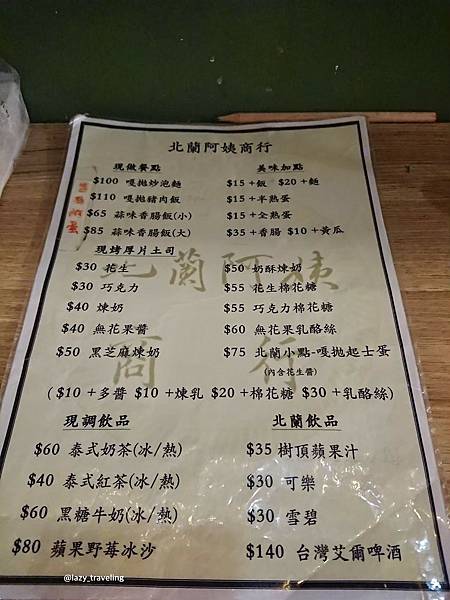 北蘭阿姨商行
現做餐點
$100 嘎拋炒泡麵
$110 嘎拋豬肉飯
$65 蒜味香腸飯(小)
$85 蒜味香腸飯(大)
美味加點
$15 +飯 $20 +麵
$15 +半熟蛋
$15 +全熟蛋
$35 +香腸 $10 +黃瓜
現烤厚片土司
$30 花生
$30 巧克力
$40 煉奶
$40 無花果醬
$50 黑芝麻煉奶
$50 奶酥煉奶
$55 花生棉花糖
$55 巧克力棉花糖
$60 無花果乳酪絲
$75 北蘭小點-嘎拋起士蛋
(內含花生醬)
( $10 +多醬 $10 +煉乳 $20 +棉花糖 $30 +乳酪絲)
現調飲品
$60 泰式奶茶(冰/熱)
$40 泰式紅茶(冰/熱)
$60 黑糖牛奶(冰/熱)
$80 蘋果野莓冰沙
北蘭飲品
$35 樹頂蘋果汁
$30 可樂
$30 雪碧
$140 台灣艾爾啤酒
北蘭阿姨
商行
@lazy_traveling